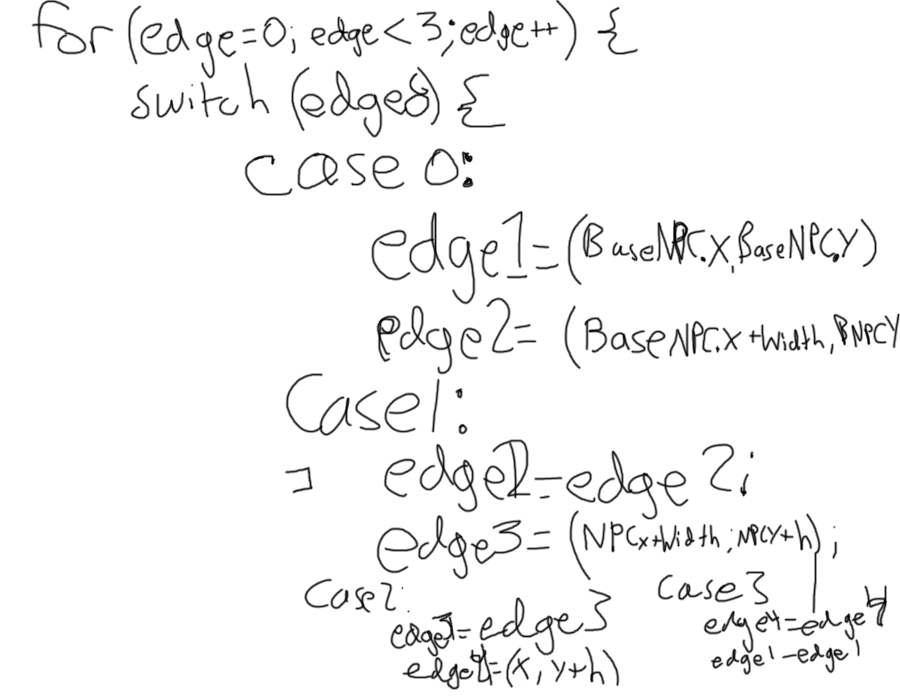 for (edge=0; edge<3; edge++) {
switch (edge) {
case 0:
edge1=(BaseNPC.X, BaseNPC.Y)
edge2= (BaseNPC.X +Width, BNPCY
Case1:
edge2=edge2;
edge3= (NPCx+Width, NPCY+h);
Case2:
edge3=edge3
edge4=(x, y+h)
Case3
edge4=edge4
edge1-edge1